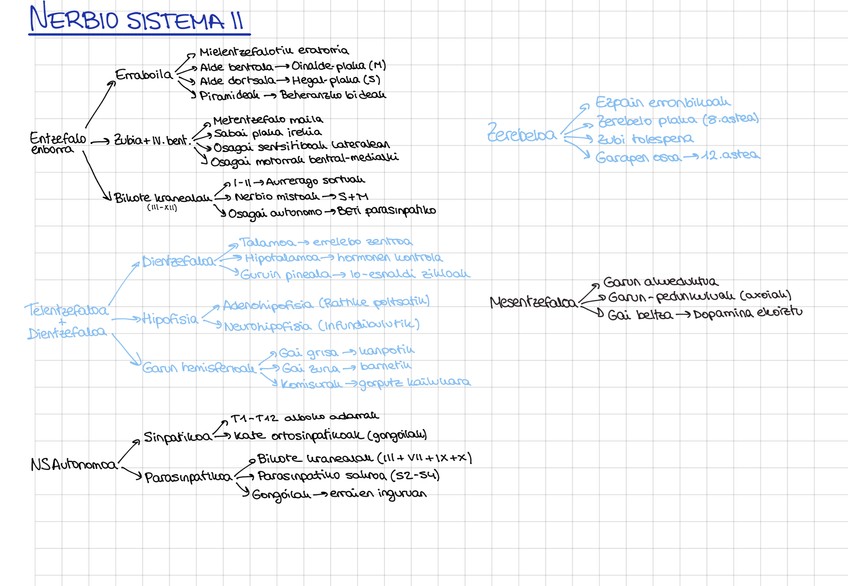 NERBIO SISTEMA II
Entzefalo enborra
Erraboila
Mielentzefalotik eratorria
Alde bentrala → Oinalde-plaka (M)
Alde dortsala → Hegal-plaka (S)
Piramideak → Beheranzko bideak
Zubia + IV. bent.
Metentzefalo maila
Sabai plaka irekia
Osagai sentsitiboak lateralean
Osagai motorrak bentral-medialki
Bikote kranealak
(III-XII)
I-II → Aurrerago sortuak
Nerbio mistoak → S+M
Osagai autonomo → BETi parasinpatiko
Zerebeloa
Ezpain erronbikoak
Zerebelo plaka (8.astea)
Zubi tolespena
Garapen osoa → 12.astea
Telentzefaloa
+
Dientzefaloa
Dientzefaloa
Talamoa → errelebo zentroa
Hipotalamoa → hormonen kontrola
Guruin pineala → lo-esnaldi zikloak
Hipofisia
Adenohipofisia (Rathke poltsatik)
Neurohipofisia (Infundibulutik)
Garun hemisferioak
Gai grisa → kanpotik
Gai zuria → barnetik
Komisurak → gorputz kailukara
Mesentzefaloa
Garun akueduktua
Garun-pedunkuluak (axoiak)
Gai beltza → Dopamina ekoiztu
NS Autonomoa
Sinpatikoa
T1-T12 alboko adarrak
Kate ortosinpatikoak (gongoilak)
Parasinpatikoa
Bikote kranealak (III + VII + IX + X)
Parasinpatiko sakroa (S2-S4)
Gongoilak → erraien inguruan